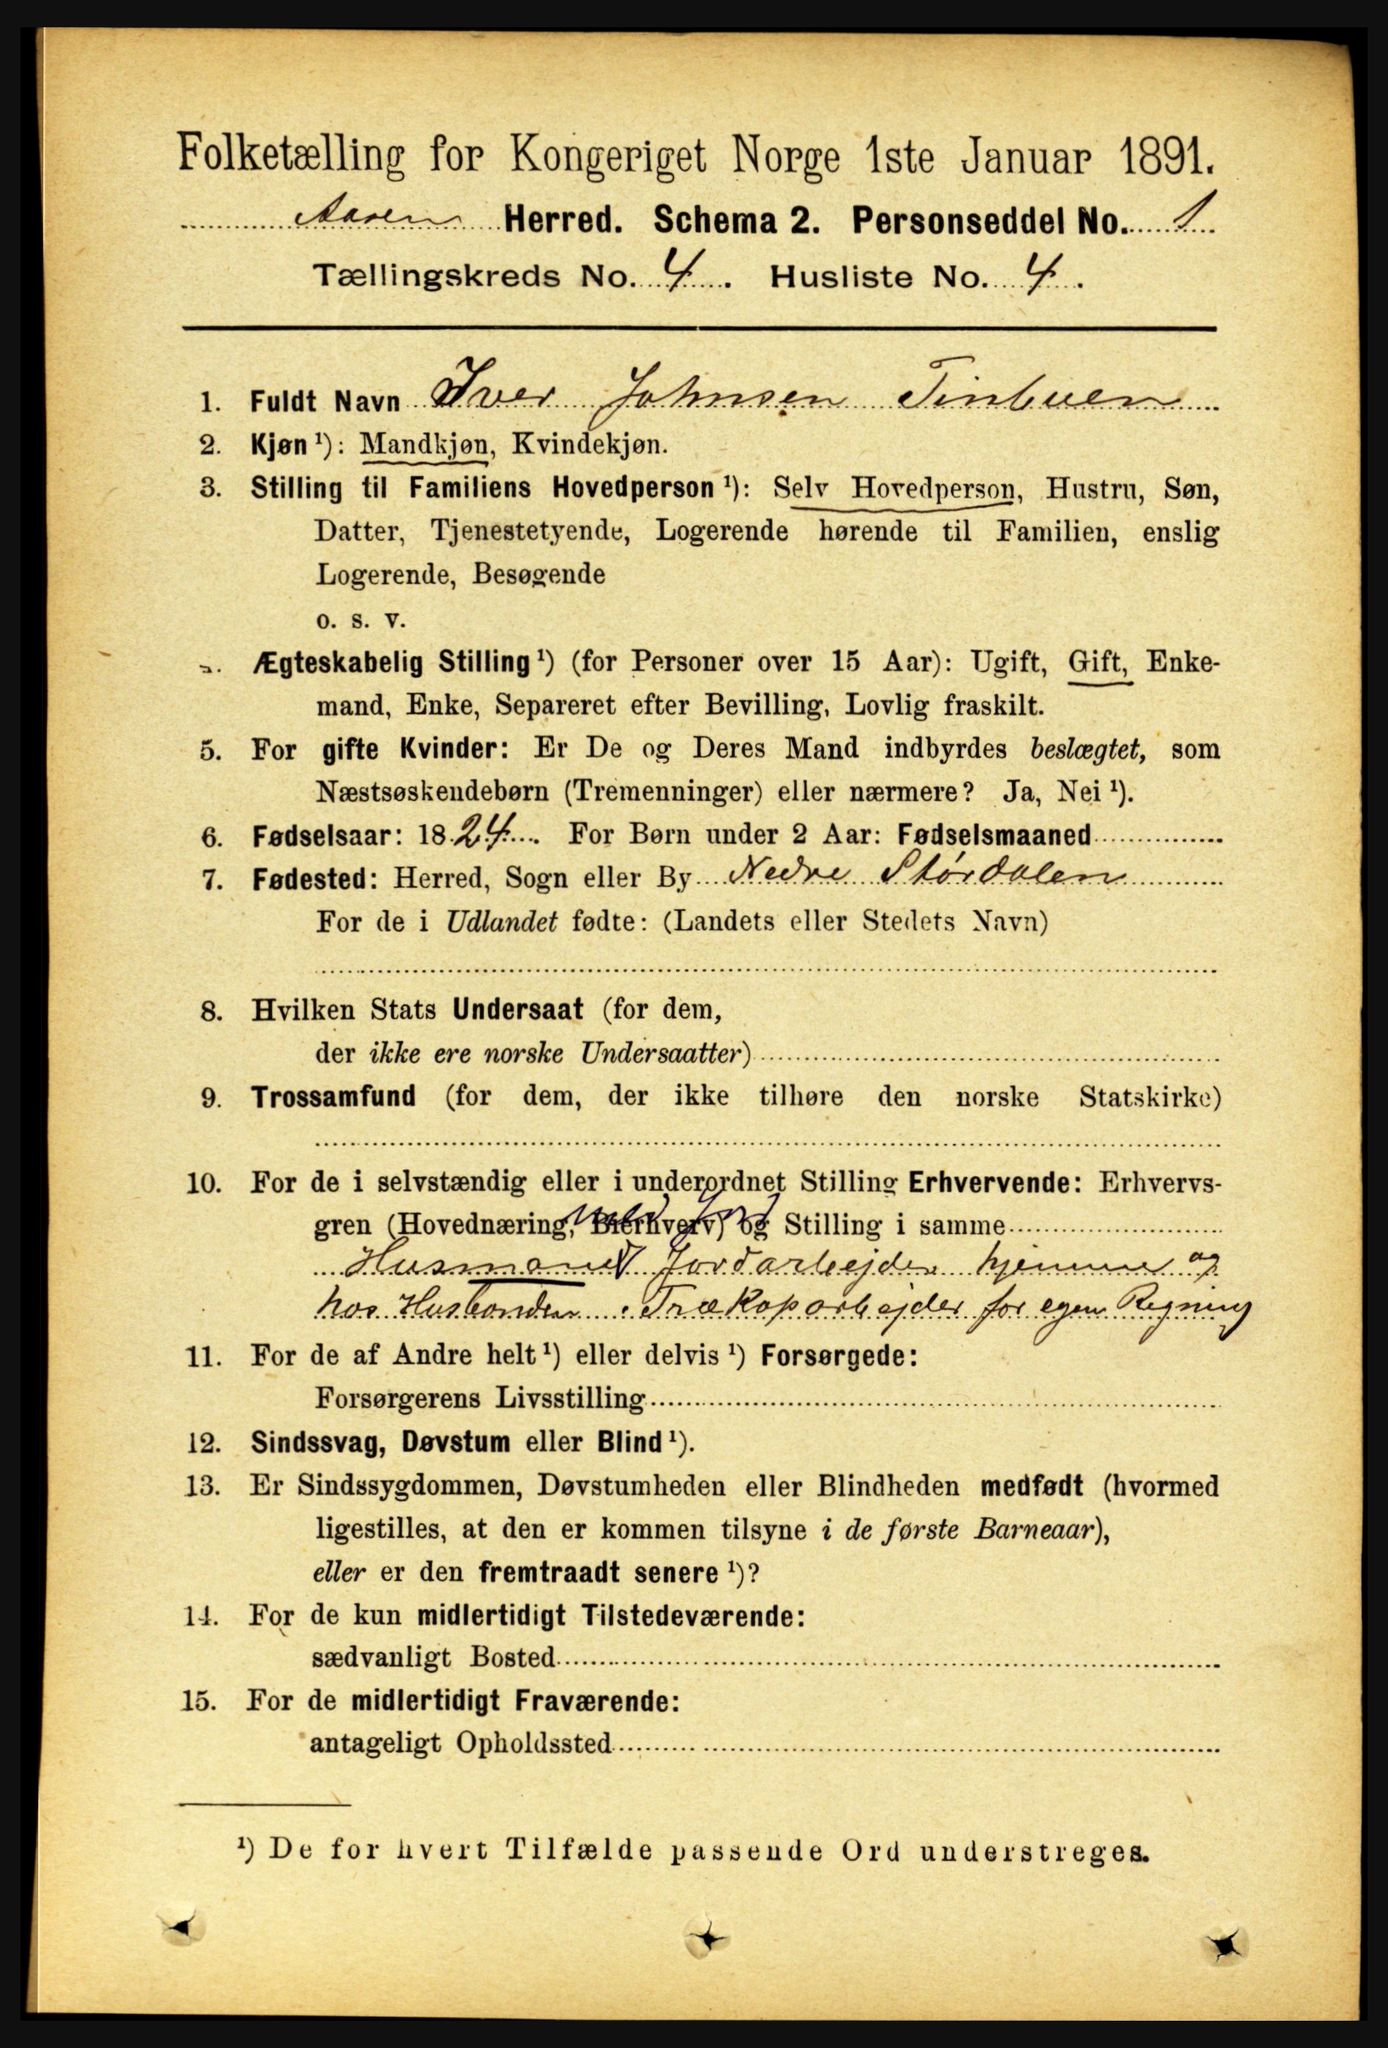 Folketælling for Kongeriget Norge 1ste Januar 1891.
Aasen Herred. Schema 2. Personseddel No. 1
Tællingskreds No. 4. Husliste No. 4.
1. Fuldt Navn Iver Johnsen Tinbuen
2. Kjøn ¹): Mandkjøn, Kvindekjøn.
3. Stilling til Familiens Hovedperson ¹): Selv Hovedperson, Hustru, Søn,
Datter, Tjenestetyende, Logerende hørende til Familien, enslig
Logerende, Besøgende
o. s. v.
Ægteskabelig Stilling ¹) (for Personer over 15 Aar): Ugift, Gift, Enke-
mand, Enke, Separeret efter Bevilling, Lovlig fraskilt.
5. For gifte Kvinder: Er De og Deres Mand indbyrdes beslægtet, som
Næstsøskendebørn (Tremenninger) eller nærmere? Ja, Nei ¹).
6. Fødselsaar: 1824. For Børn under 2 Aar: Fødselsmaaned
7. Fødested: Herred, Sogn eller By Nedre Størdalen
For de i Udlandet fødte: (Landets eller Stedets Navn)
8. Hvilken Stats Undersaat (for dem,
der ikke ere norske Undersaatter)
9. Trossamfund (for dem, der ikke tilhøre den norske Statskirke)
10. For de i selvstændig eller i underordnet Stilling Erhvervende: Erhvervs-
gren (Hovednæring, Bierhverv) og Stilling i samme
med Jord
Husmand Jordarbejder hjemme og
hos Husbonden. Trækoparbejder for egen Regning
11. For de af Andre helt ¹) eller delvis ¹) Forsørgede:
Forsørgerens Livsstilling
12. Sindssvag, Døvstum eller Blind ¹).
13. Er Sindssygdommen, Døvstumheden eller Blindheden medfødt (hvormed
ligestilles, at den er kommen tilsyne i de første Barneaar),
eller er den fremtraadt senere ¹)?
14. For de kun midlertidigt Tilstedeværende:
sædvanligt Bosted
15. For de midlertidigt Fraværende:
antageligt Opholdssted
¹) De for hvert Tilfælde passende Ord understreges.